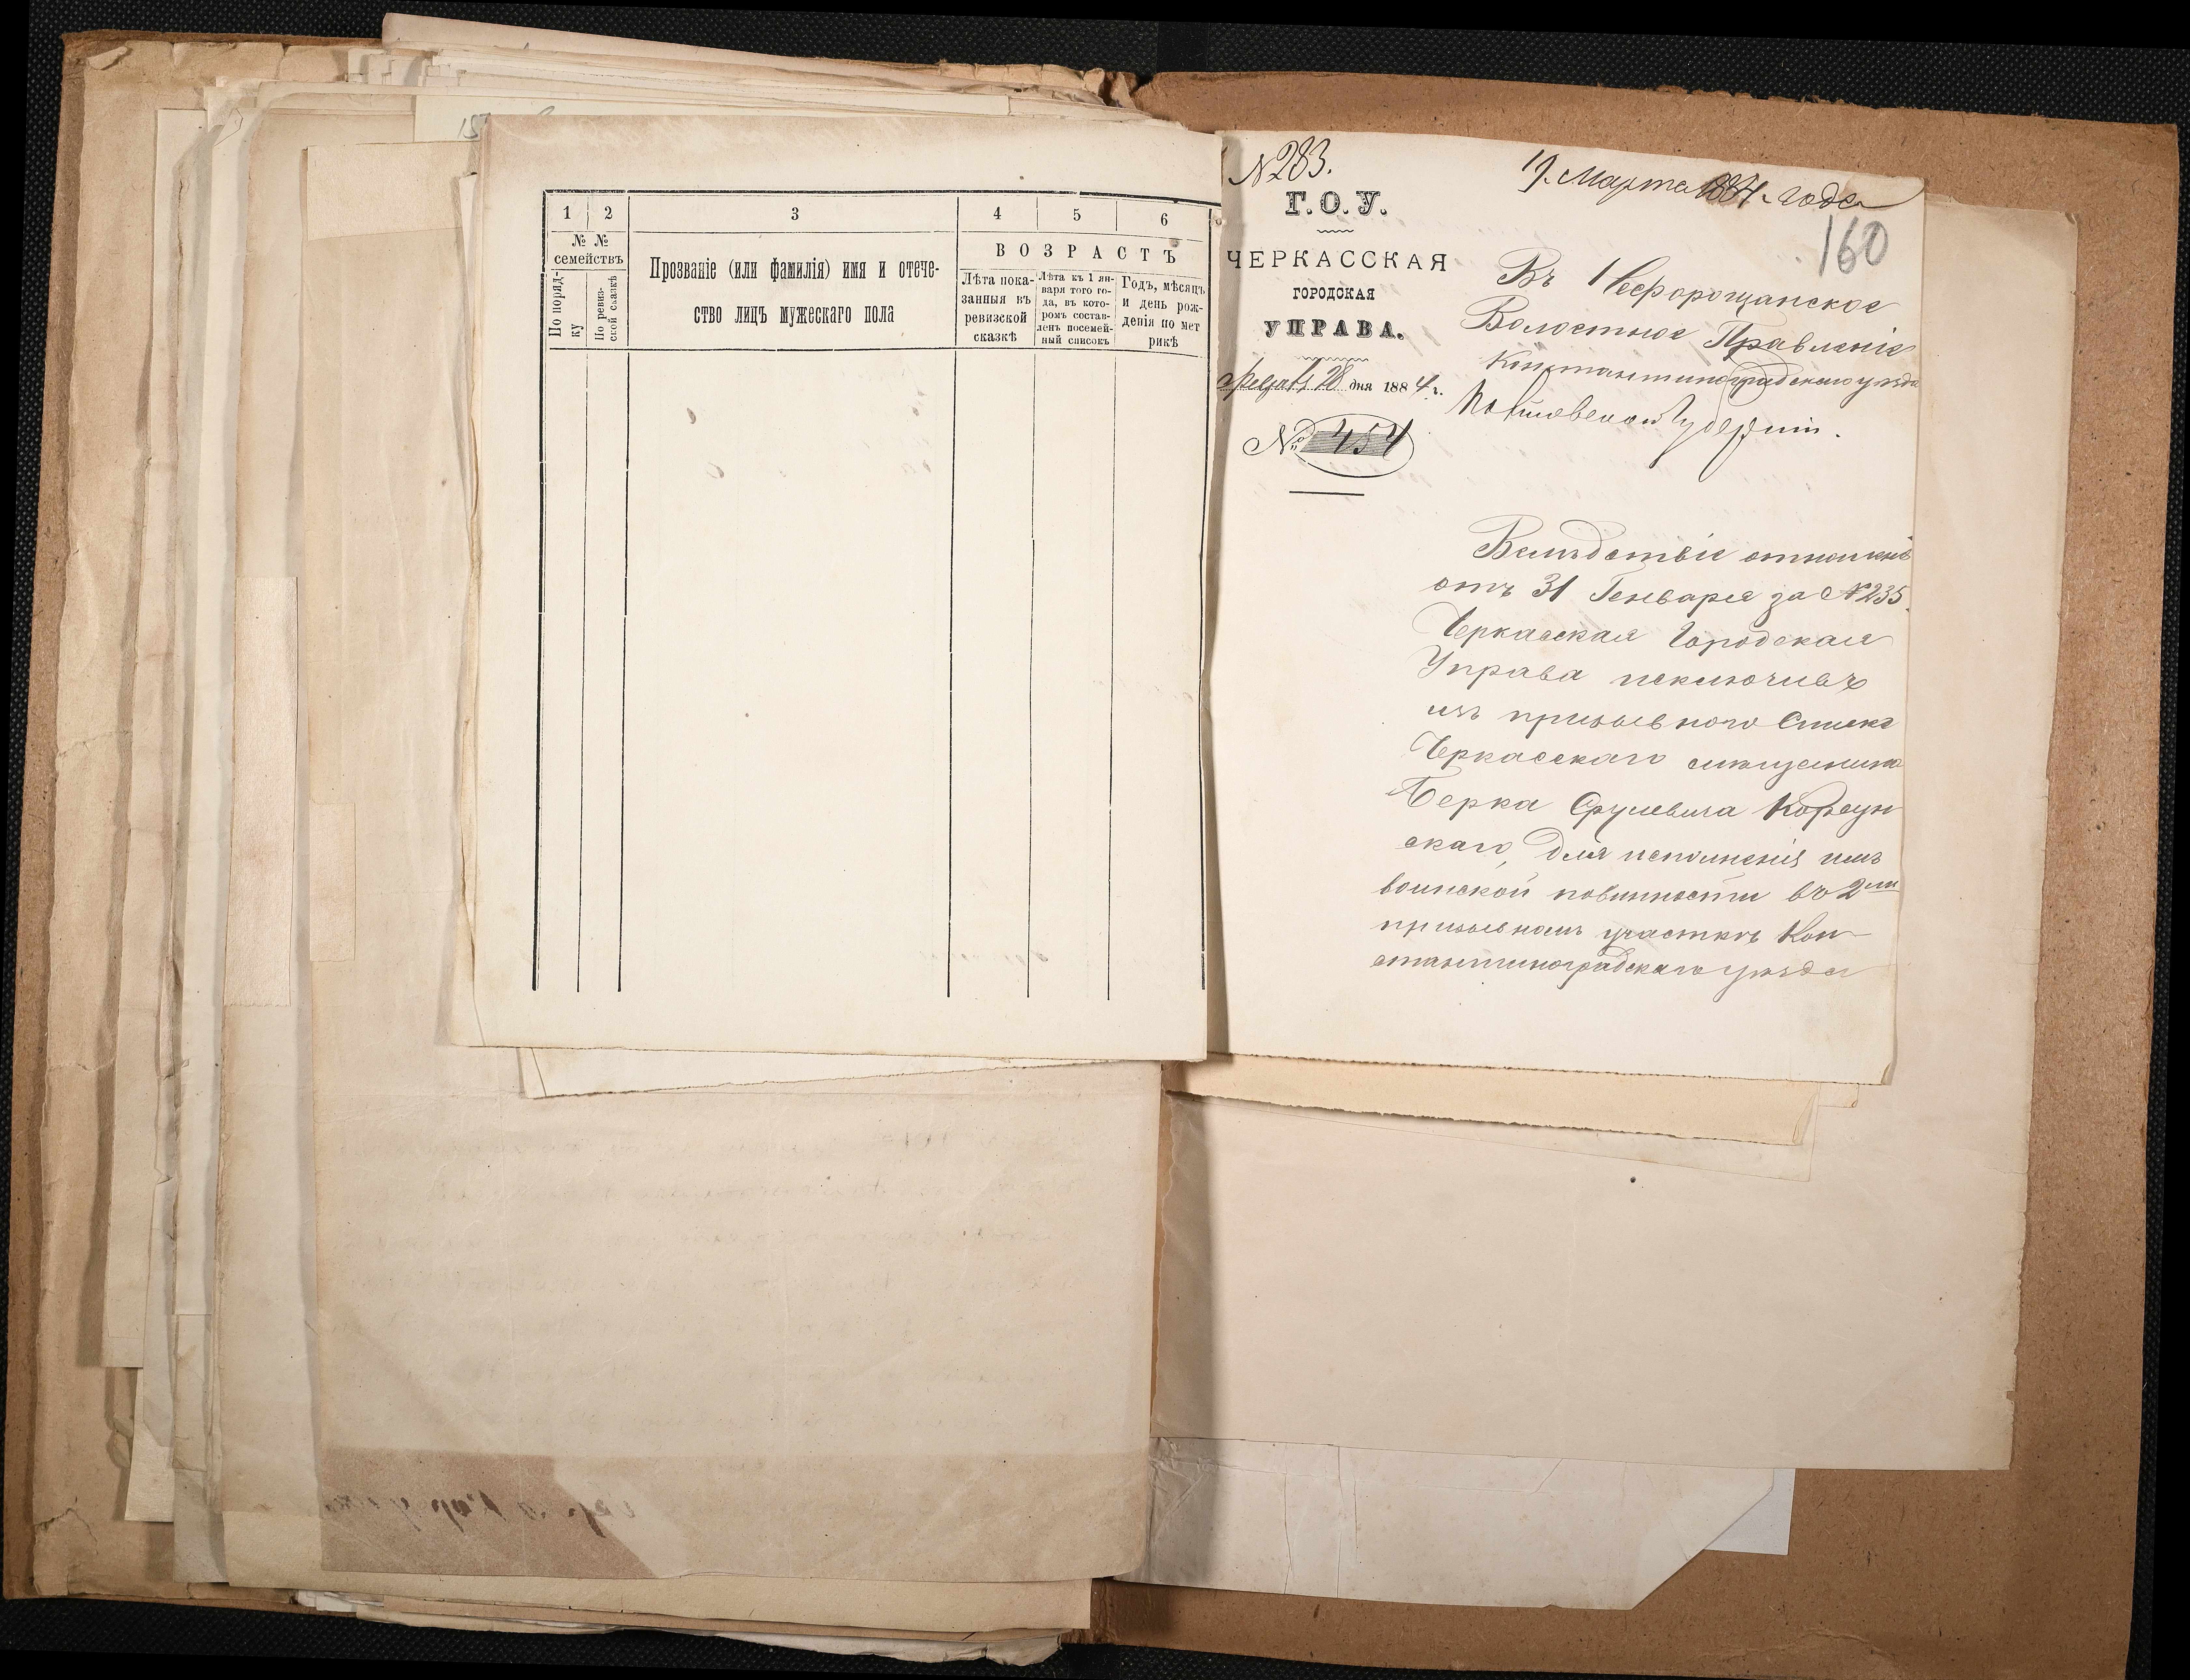 1
2
3
4
5
6
№ №
семействъ
По поряд-
ку
По ревиз-
ской сказкѣ
Прозваніе (или фамилія) имя и отече-
ство лицъ мужескаго пола
ВОЗРАСТЪ
Лѣта пока-
занныя въ
ревизской
сказкѣ
Лѣта къ 1 ян-
варя того го-
да, въ кото-
ромъ состав-
ленъ посемей-
ный списокъ
Годъ, мѣсяцъ
и день рож-
денія по мет
рикѣ
№ 283.
Марта 1884 года
160
Г. О. У.
ЧЕРКАССКАЯ
ГОРОДСКАЯ
УПРАВА.
28 дня 1884 г.
№ 454
Въ Нефорощанское
Волостное Правленіе
Константиноградскаго уѣзда
Полтавской Губерніи.
Вслѣдствіе отношенія
отъ 31 Генваря за № 235.
Черкасская Городская
Управа исключивъ
изъ призывного Списка
Черкасскаго мѣщанина
Берка Срулевича Корсун
скаго, для исполненія имъ
воинской повинности во 2мъ
призывномъ участкѣ Кон-
стантиноградскаго уѣзда